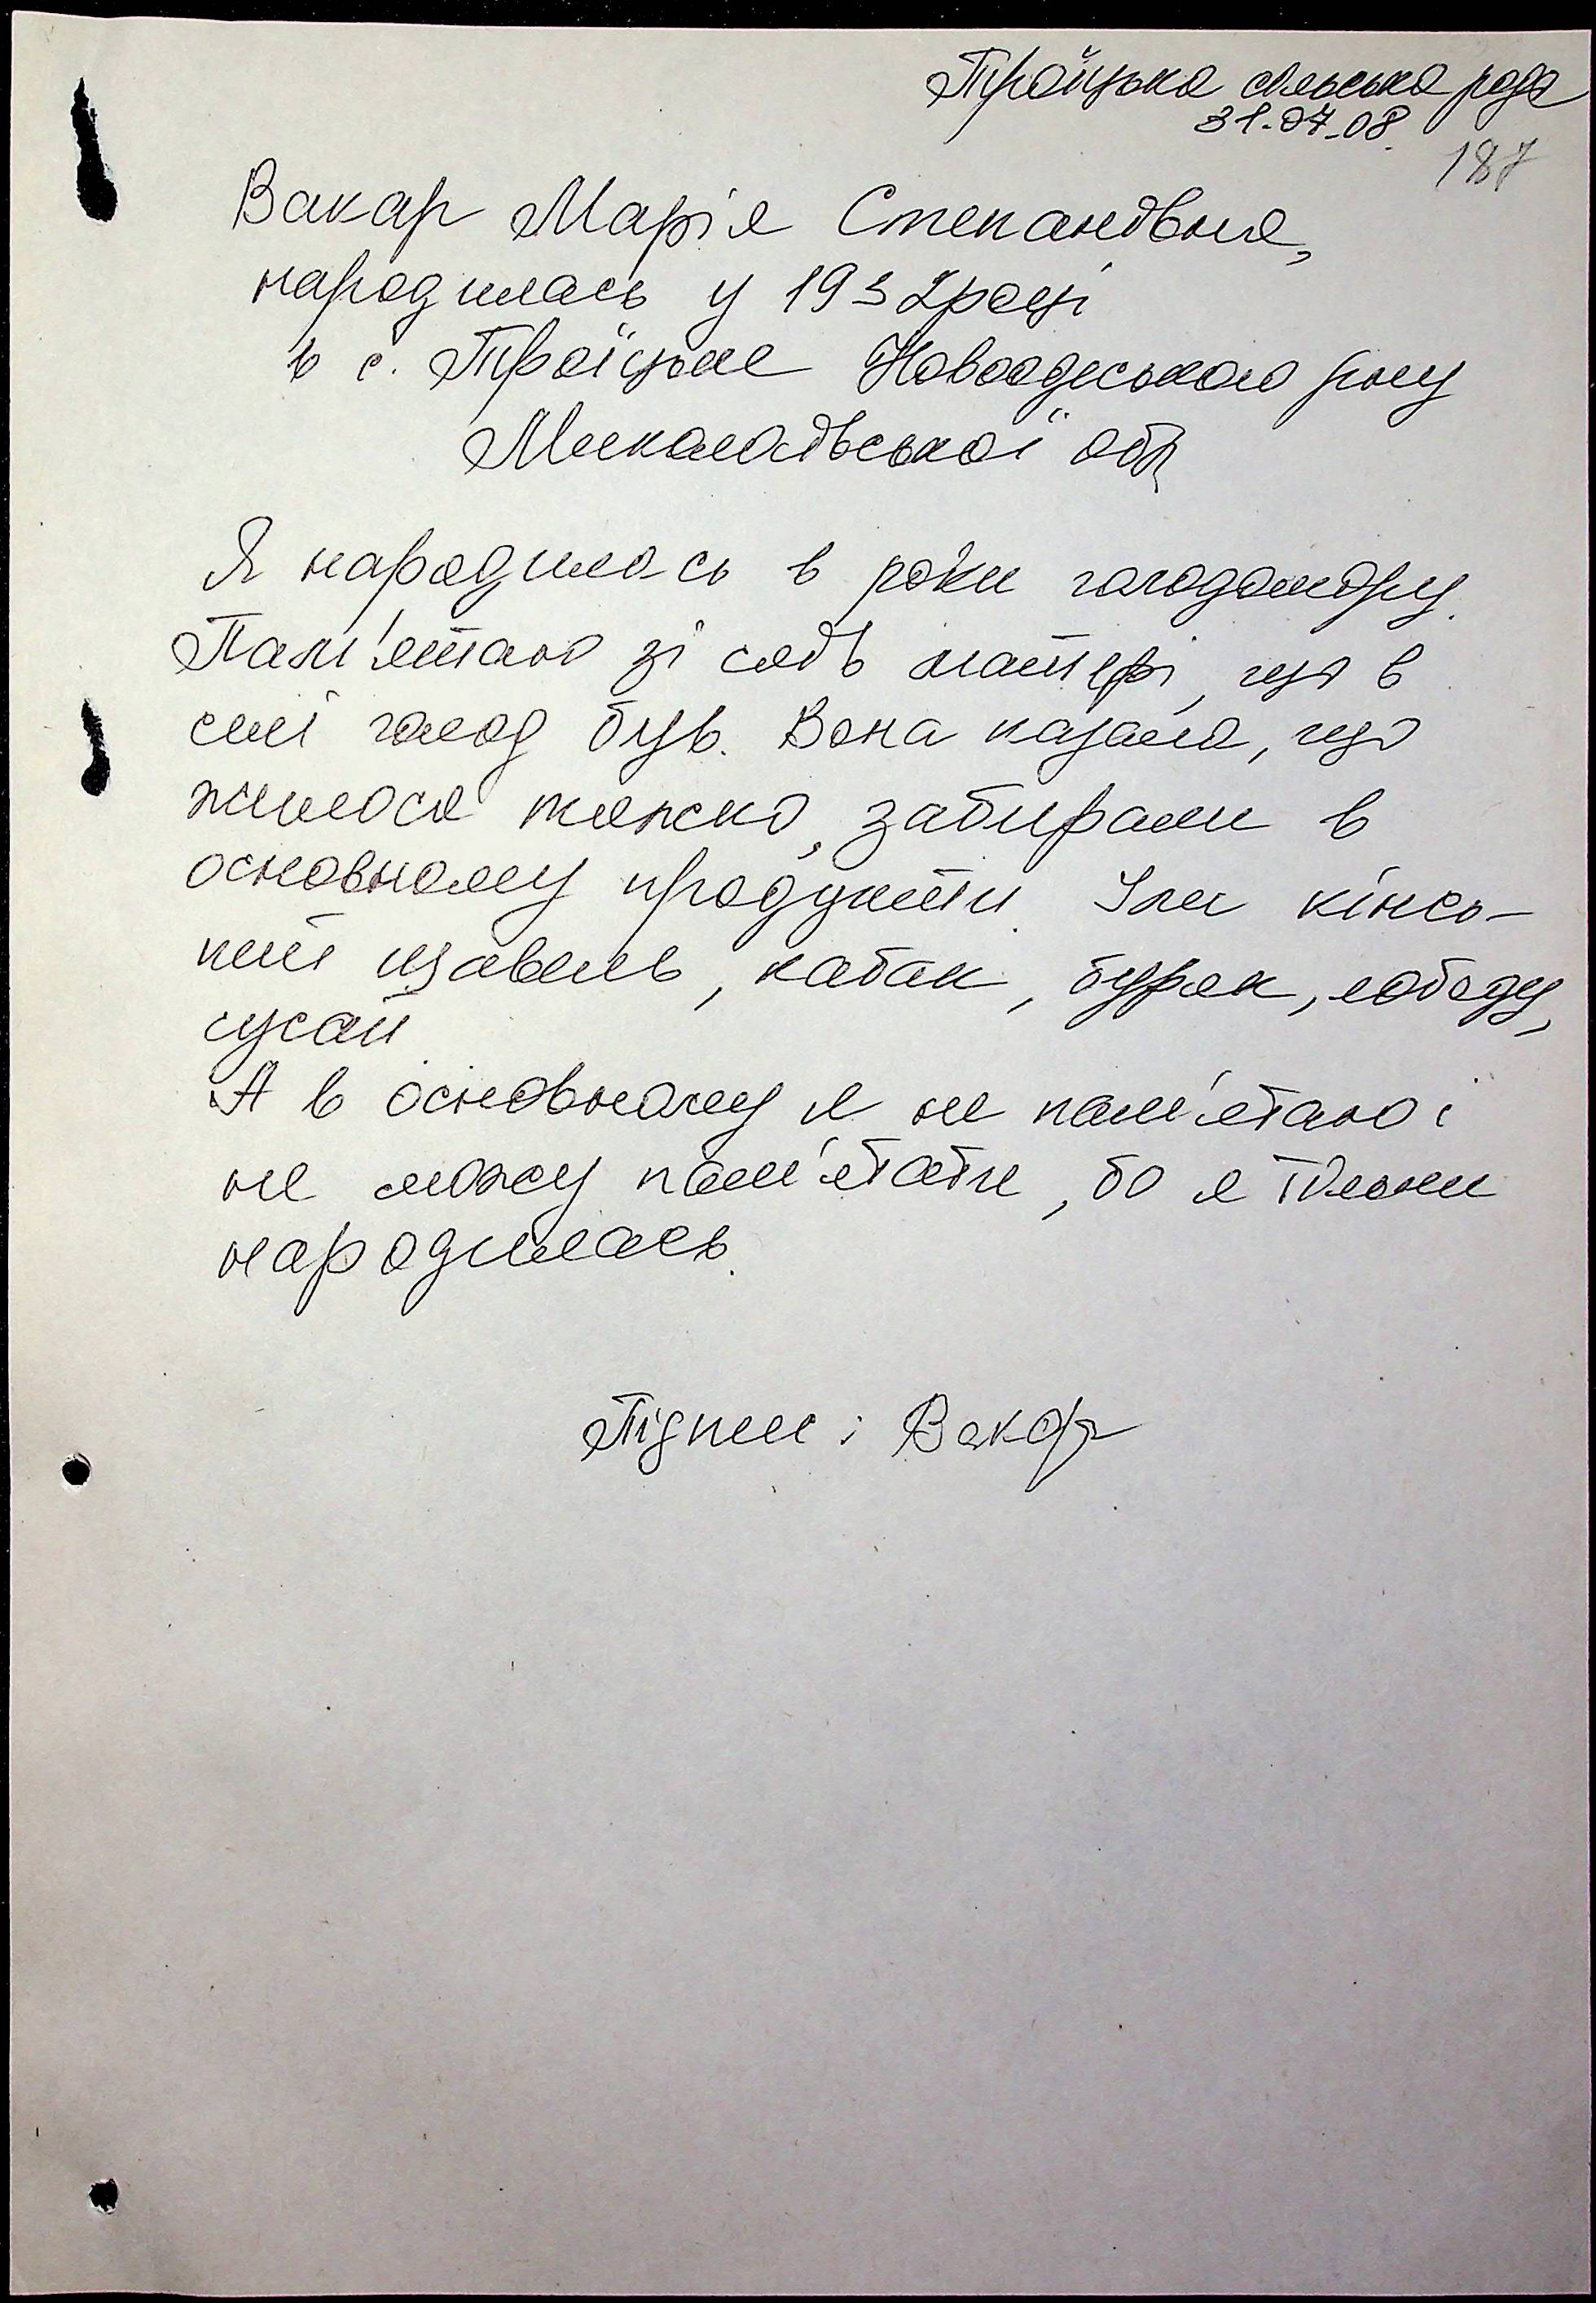 Троїцька сільська рада
31.07.08.
187
Вакар Марія Степанівна,
народилась у 1932 році
в с. Троїцьке Новоодеського р-ну
Миколаївської обл
Я народилась в роки голодомору.
Пам'ятаю зі слів матері, що в
селі голод був. Вона казала, що
жилося тяжко, забирали в
основному продукти. Їли кінсь-
кий щавель, кабак, буряк, лободу,
сусаи
А в основному я не пам'ятаю і
не можу пам'ятати, бо я тільки
народилась.
Підпис: Вакар